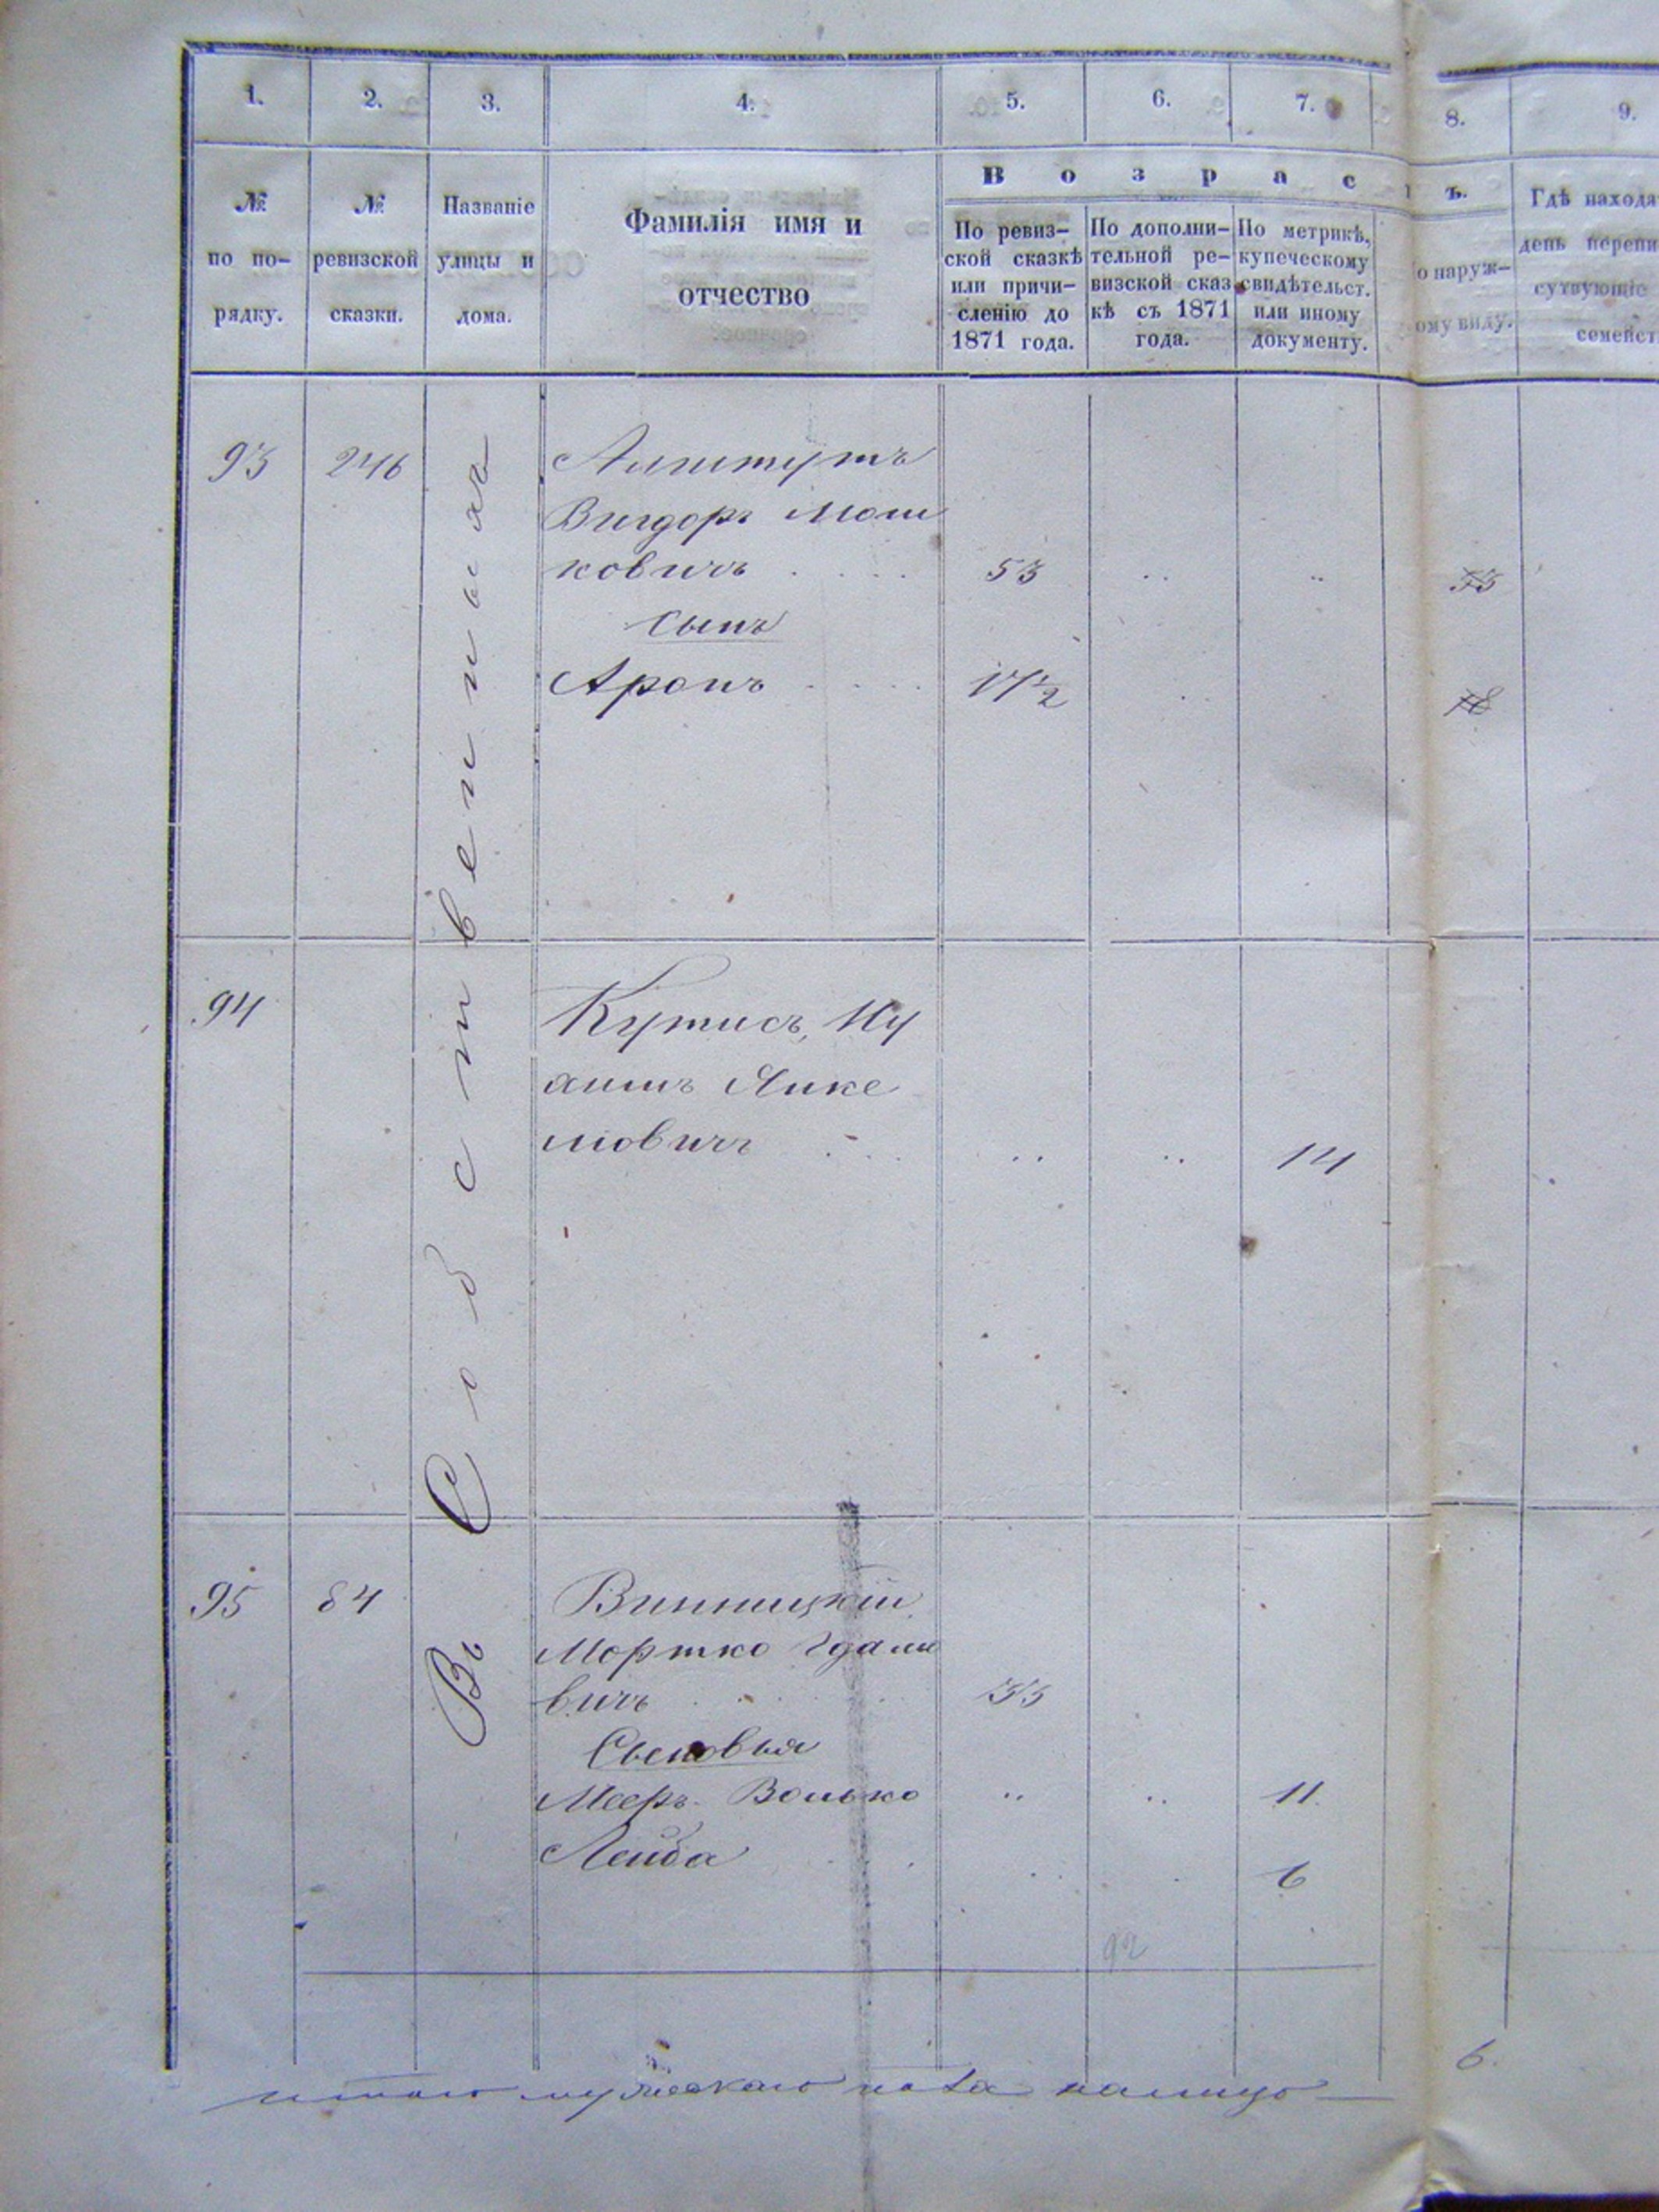 1. 2. 3. 4. 5. 6. 7. 8. 9.
№ по по-рядку.
№ ревизской сказки.
Названіе улицы и дома.
Фамилія имя и отчество
В о з р а с т ъ.
По ревиз-
ской сказкѣ
или причи-
сленію до
1871 года.
По дополни-
тельной ре-
визской сказ
кѣ съ 1871
года.
По метрикѣ,
купеческому
свидѣтельст.
или иному
документу.
о наруж-
ому виду.
Гдѣ находя
день перепи
сутвующіе
семейст
Въ Собственныхъ
93 246
Вигдоръ Мош
ковичъ 53 53
Сынъ
Аронъ 17½ 18
94 Кутисъ,
Янке
лiовичъ 14
95 84 Винницкій
Мортко Гдаліо
вичъ 53
Сыновья
Мееръ-Волько 11
Лейба 6
92
итого мужескаго пола налицо 6.